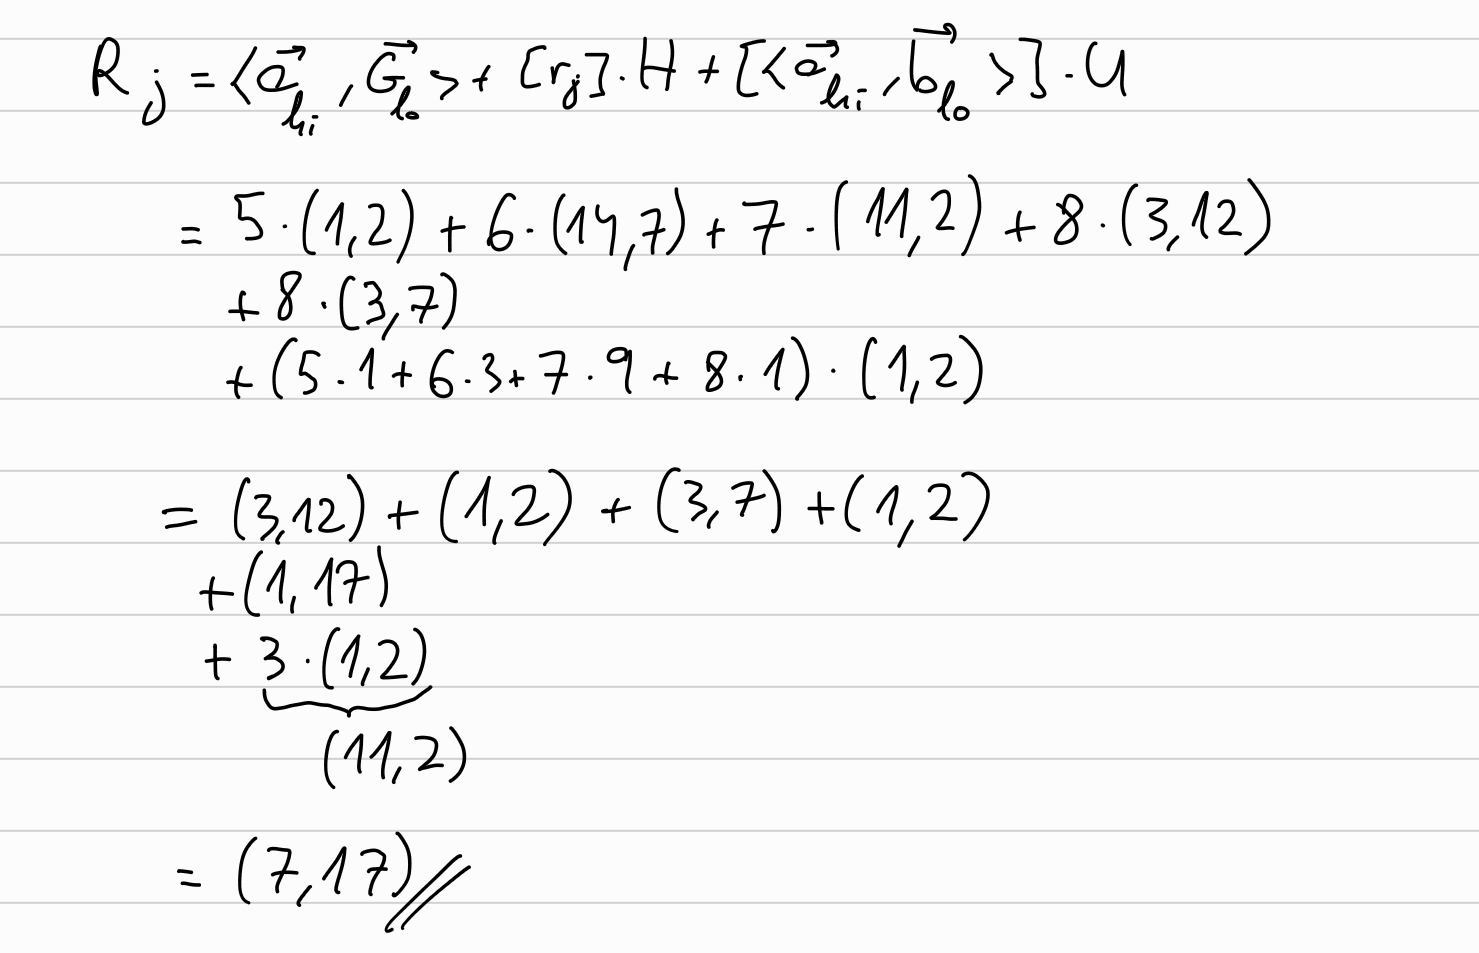 R_j = <a⃗_hi, G⃗_lo> + [r_j]·H + [<a⃗_hi, b⃗_lo>]·U
= 5·(1,2) + 6·(14,7) + 7·(11,2) + 8·(3,12)
+ 8·(3,7)
+ (5·1 + 6·3 + 7·9 + 8·1)·(1,2)
= (3,12) + (1,2) + (3,7) + (1,2)
+ (1,17)
+ 3·(1,2)
(11,2)
= (7,17)//